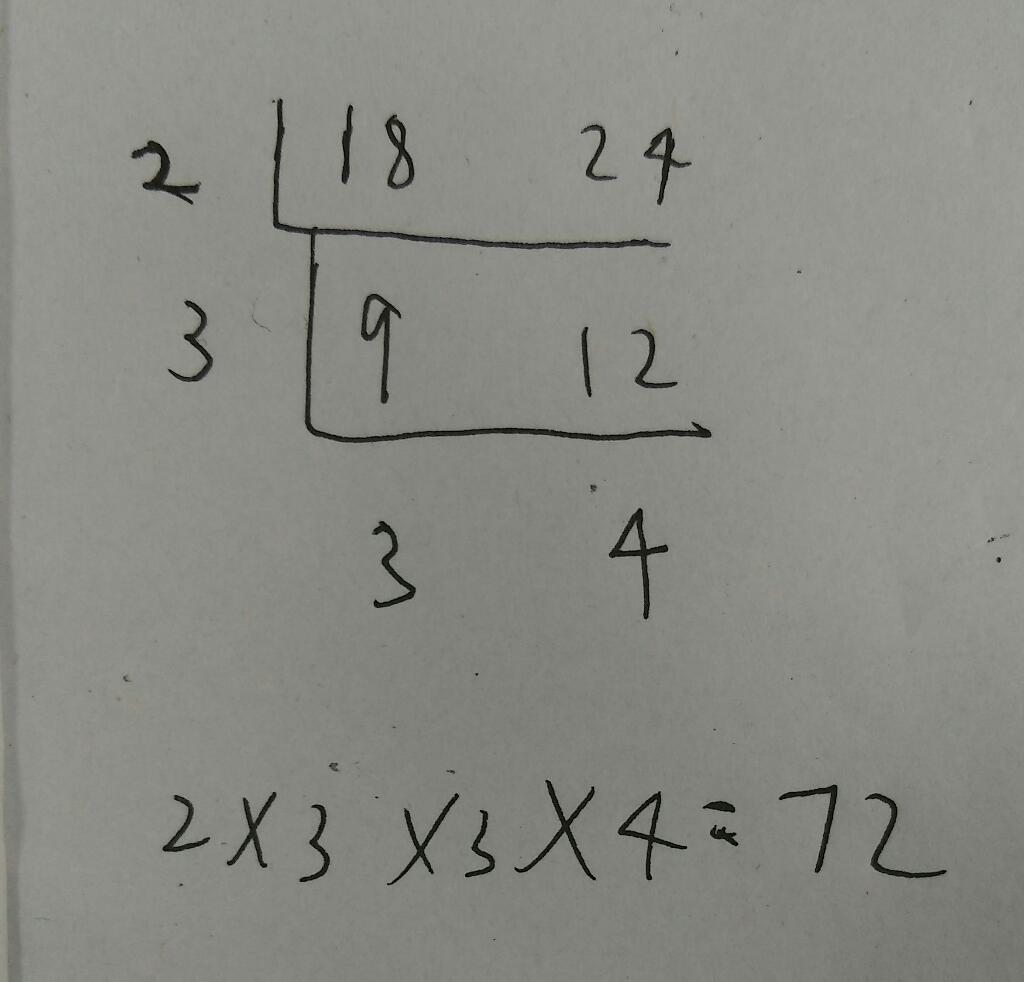 2 18 24
3 9 12
3 4
2X3X3X4=72